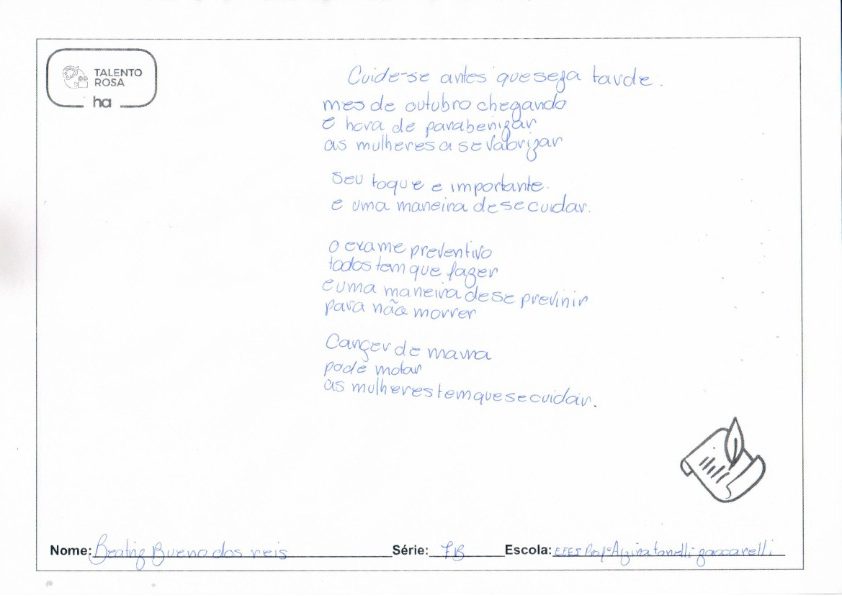 TALENTO
ROSA
ha
Cuide-se antes que seja tarde.
mes de outubro chegando
e hora de parabenizar
as mulheres a se valorizar
Seu toque e importante.
e uma maneira de se cuidar.
o exame preventivo
todos tem que fazer
e uma maneira de se previnir
para não morrer
Cançer de mama
pode matar
as mulheres tem que se cuidar.
Nome: Beatriz Bueno dos reis Série: 7B Escola: Profª Alzira